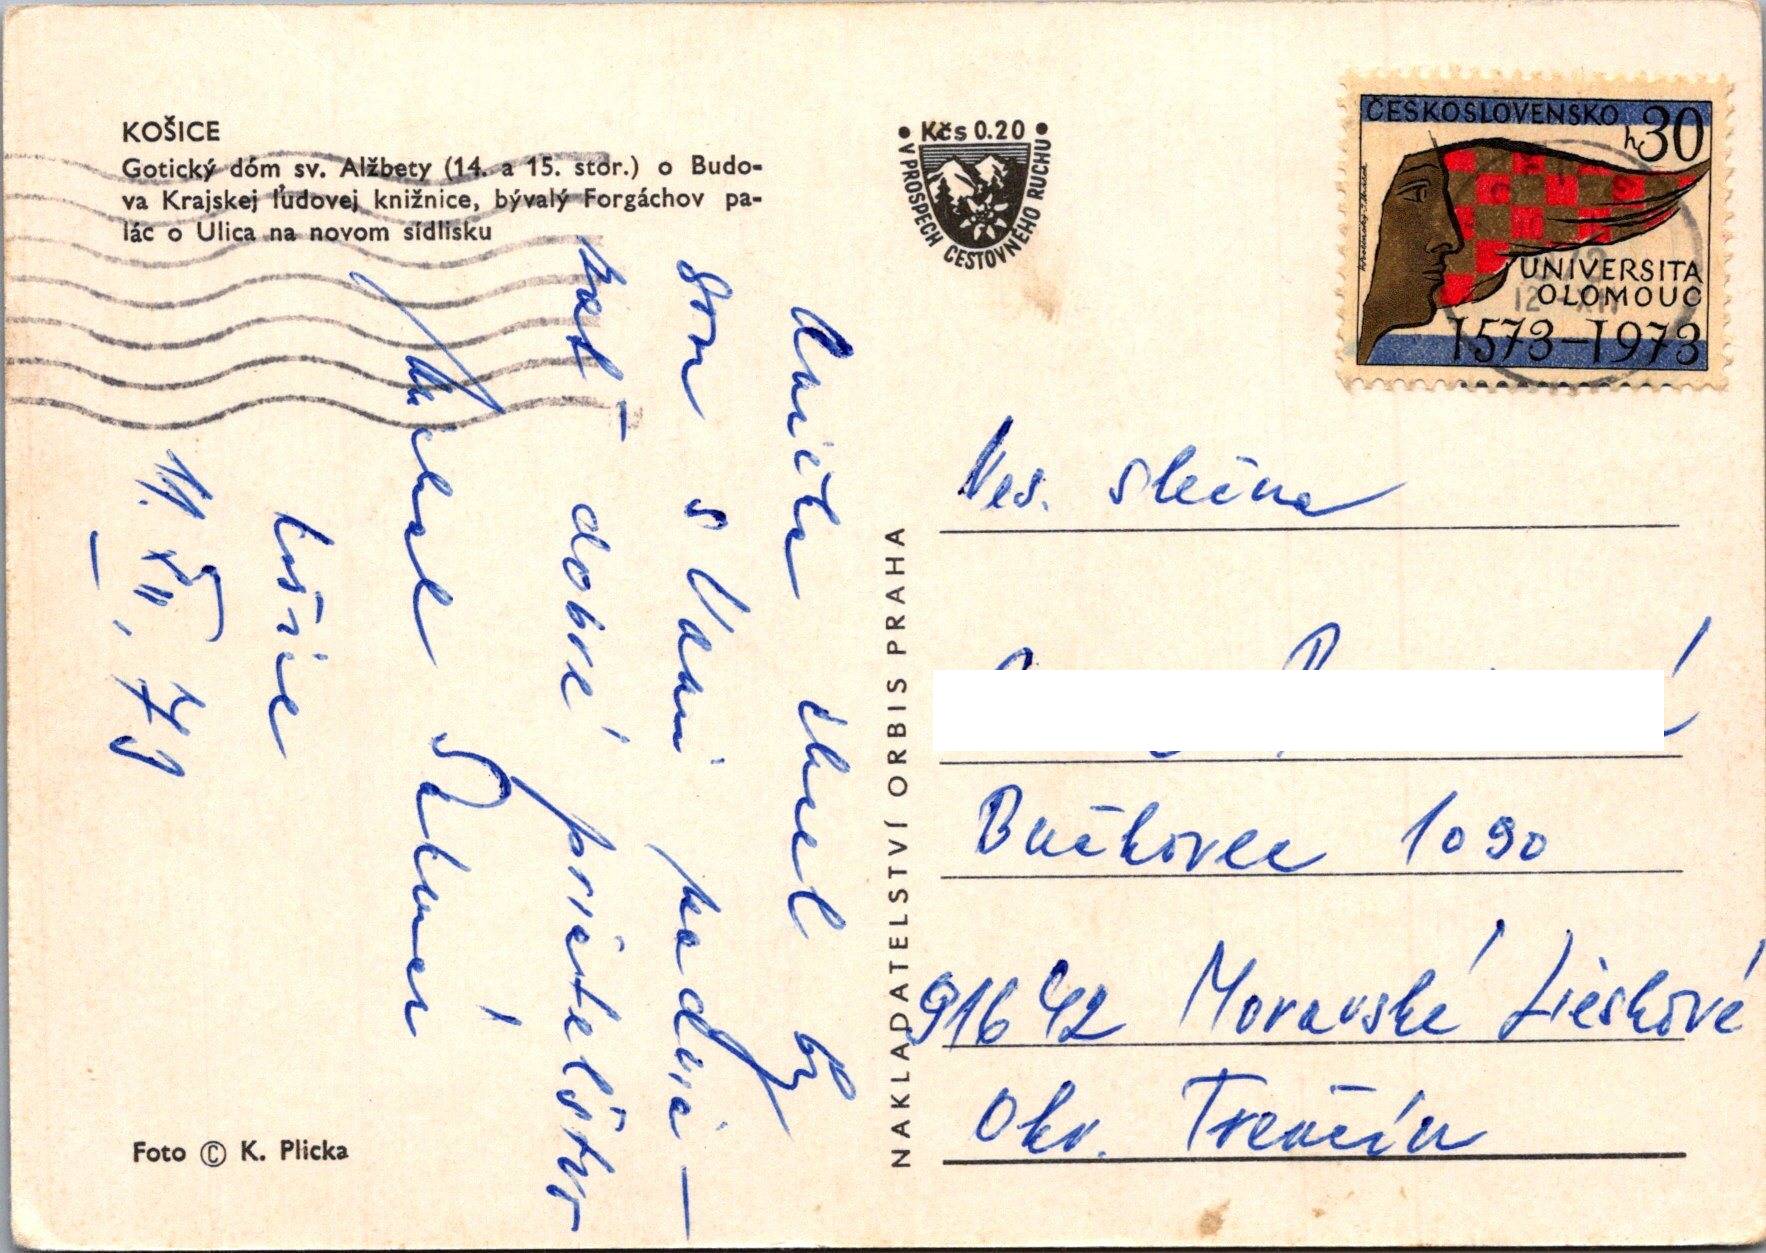 KOŠICE
Gotický dóm sv. Alžbety (14. a 15. stor.) o Budo-
va Krajskej ľudovej knižnice, bývalý Forgáchov pa-
lác o Ulica na novom sídlisku
• Kčs 0.20 •
V PROSPECH CESTOVNÉHO RUCHU
ČESKOSLOVENSKO
h 30
UNIVERSITA
OLOMOUC
1573–1973
Anička chcel by
som s Vami nadvia-
zať dobré priateľstvo
Michal
Košice
11. XII. 73
NAKLADATELSTVÍ ORBIS PRAHA
Ves. slečna
Bučkovec 1090
916 42 Moravské Lieskové
Okr. Trenčín
Foto © K. Plicka